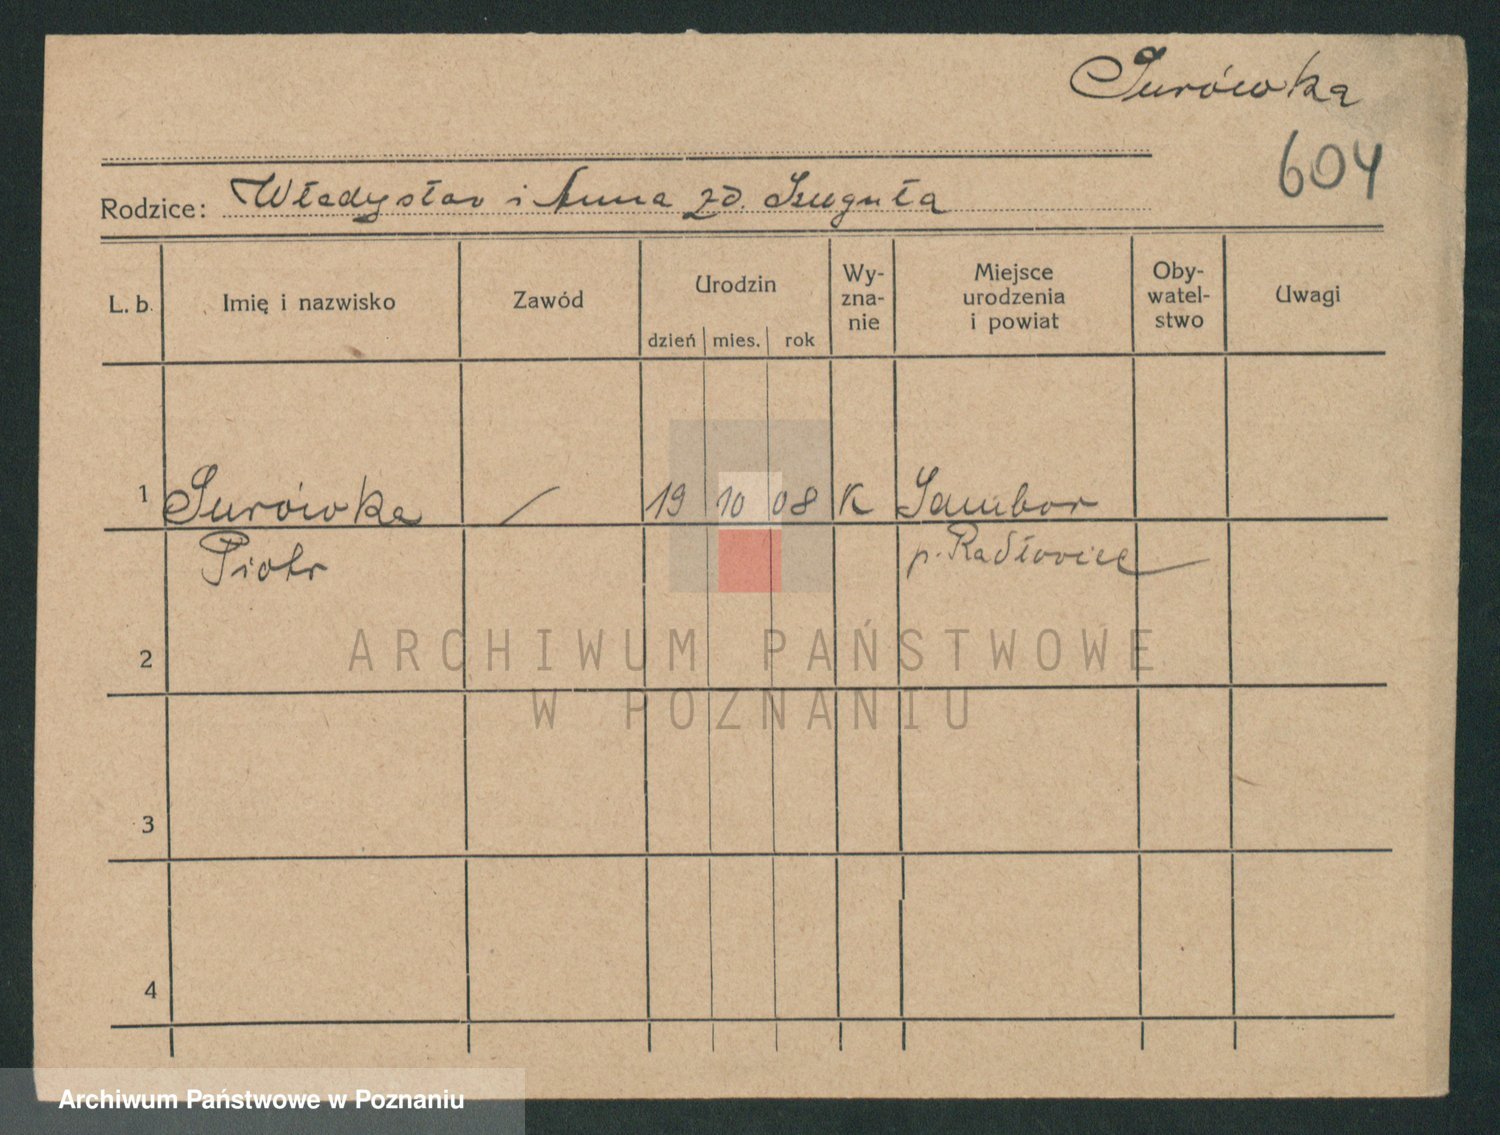 Surówka
604
Rodzice: Władysław i Anna zd. Szuguła
L. b. Imię i nazwisko Zawód Urodzin dzień mies. rok Wy-zna-nie Miejsce urodzenia i powiat Oby-watel-stwo Uwagi
1 Surówka / 19 10 08 K Sambor
Piotr p. Radłowice —
2
ARCHIWUM PAŃSTWOWE
W POZNANIU
3
4
Archiwum Państwowe w Poznaniu